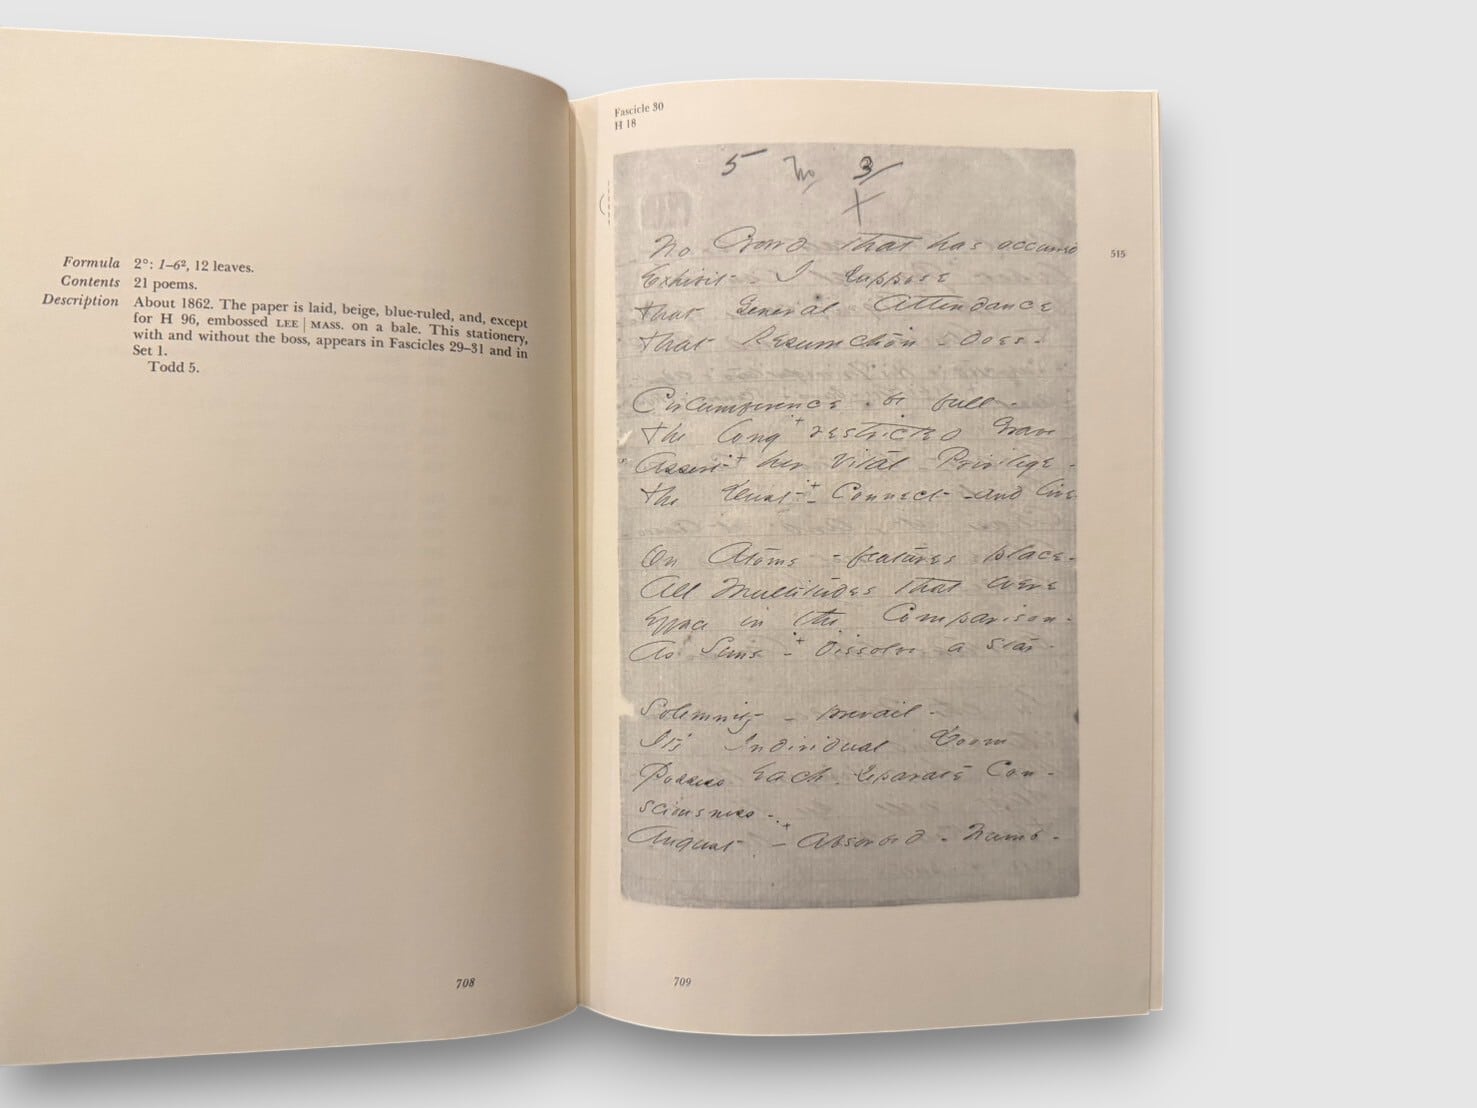 Formula 2°: 1–6², 12 leaves.
Contents 21 poems.
Description About 1862. The paper is laid, beige, blue-ruled, and, except
for H 96, embossed LEE | MASS. on a bale. This stationery,
with and without the boss, appears in Fascicles 29–31 and in
Set 1.
Todd 5.
708
Fascicle 30
H 18
5 No 3/
X
No Crowd that has occurred
Exhibit - I suppose
That General Attendance
That Resurrection - does -
Circumference be full -
The long + restricted Grave
Assert + her Vital Privilege -
The Dust - + Connect - and live
On Atoms - features place -
All Multitudes that were
Efface in the Comparison -
As Suns - + dissolve a star -
Solemnity - prevail -
Its Individual Doom
Possess Each - separate Con -
sciousness -
August - + Absorbed - Numb -
515
709